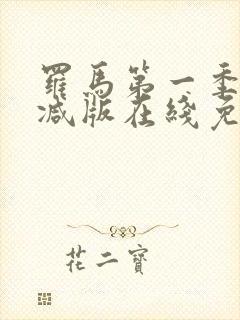 羅馬第一季
減版在綫免
花二寶